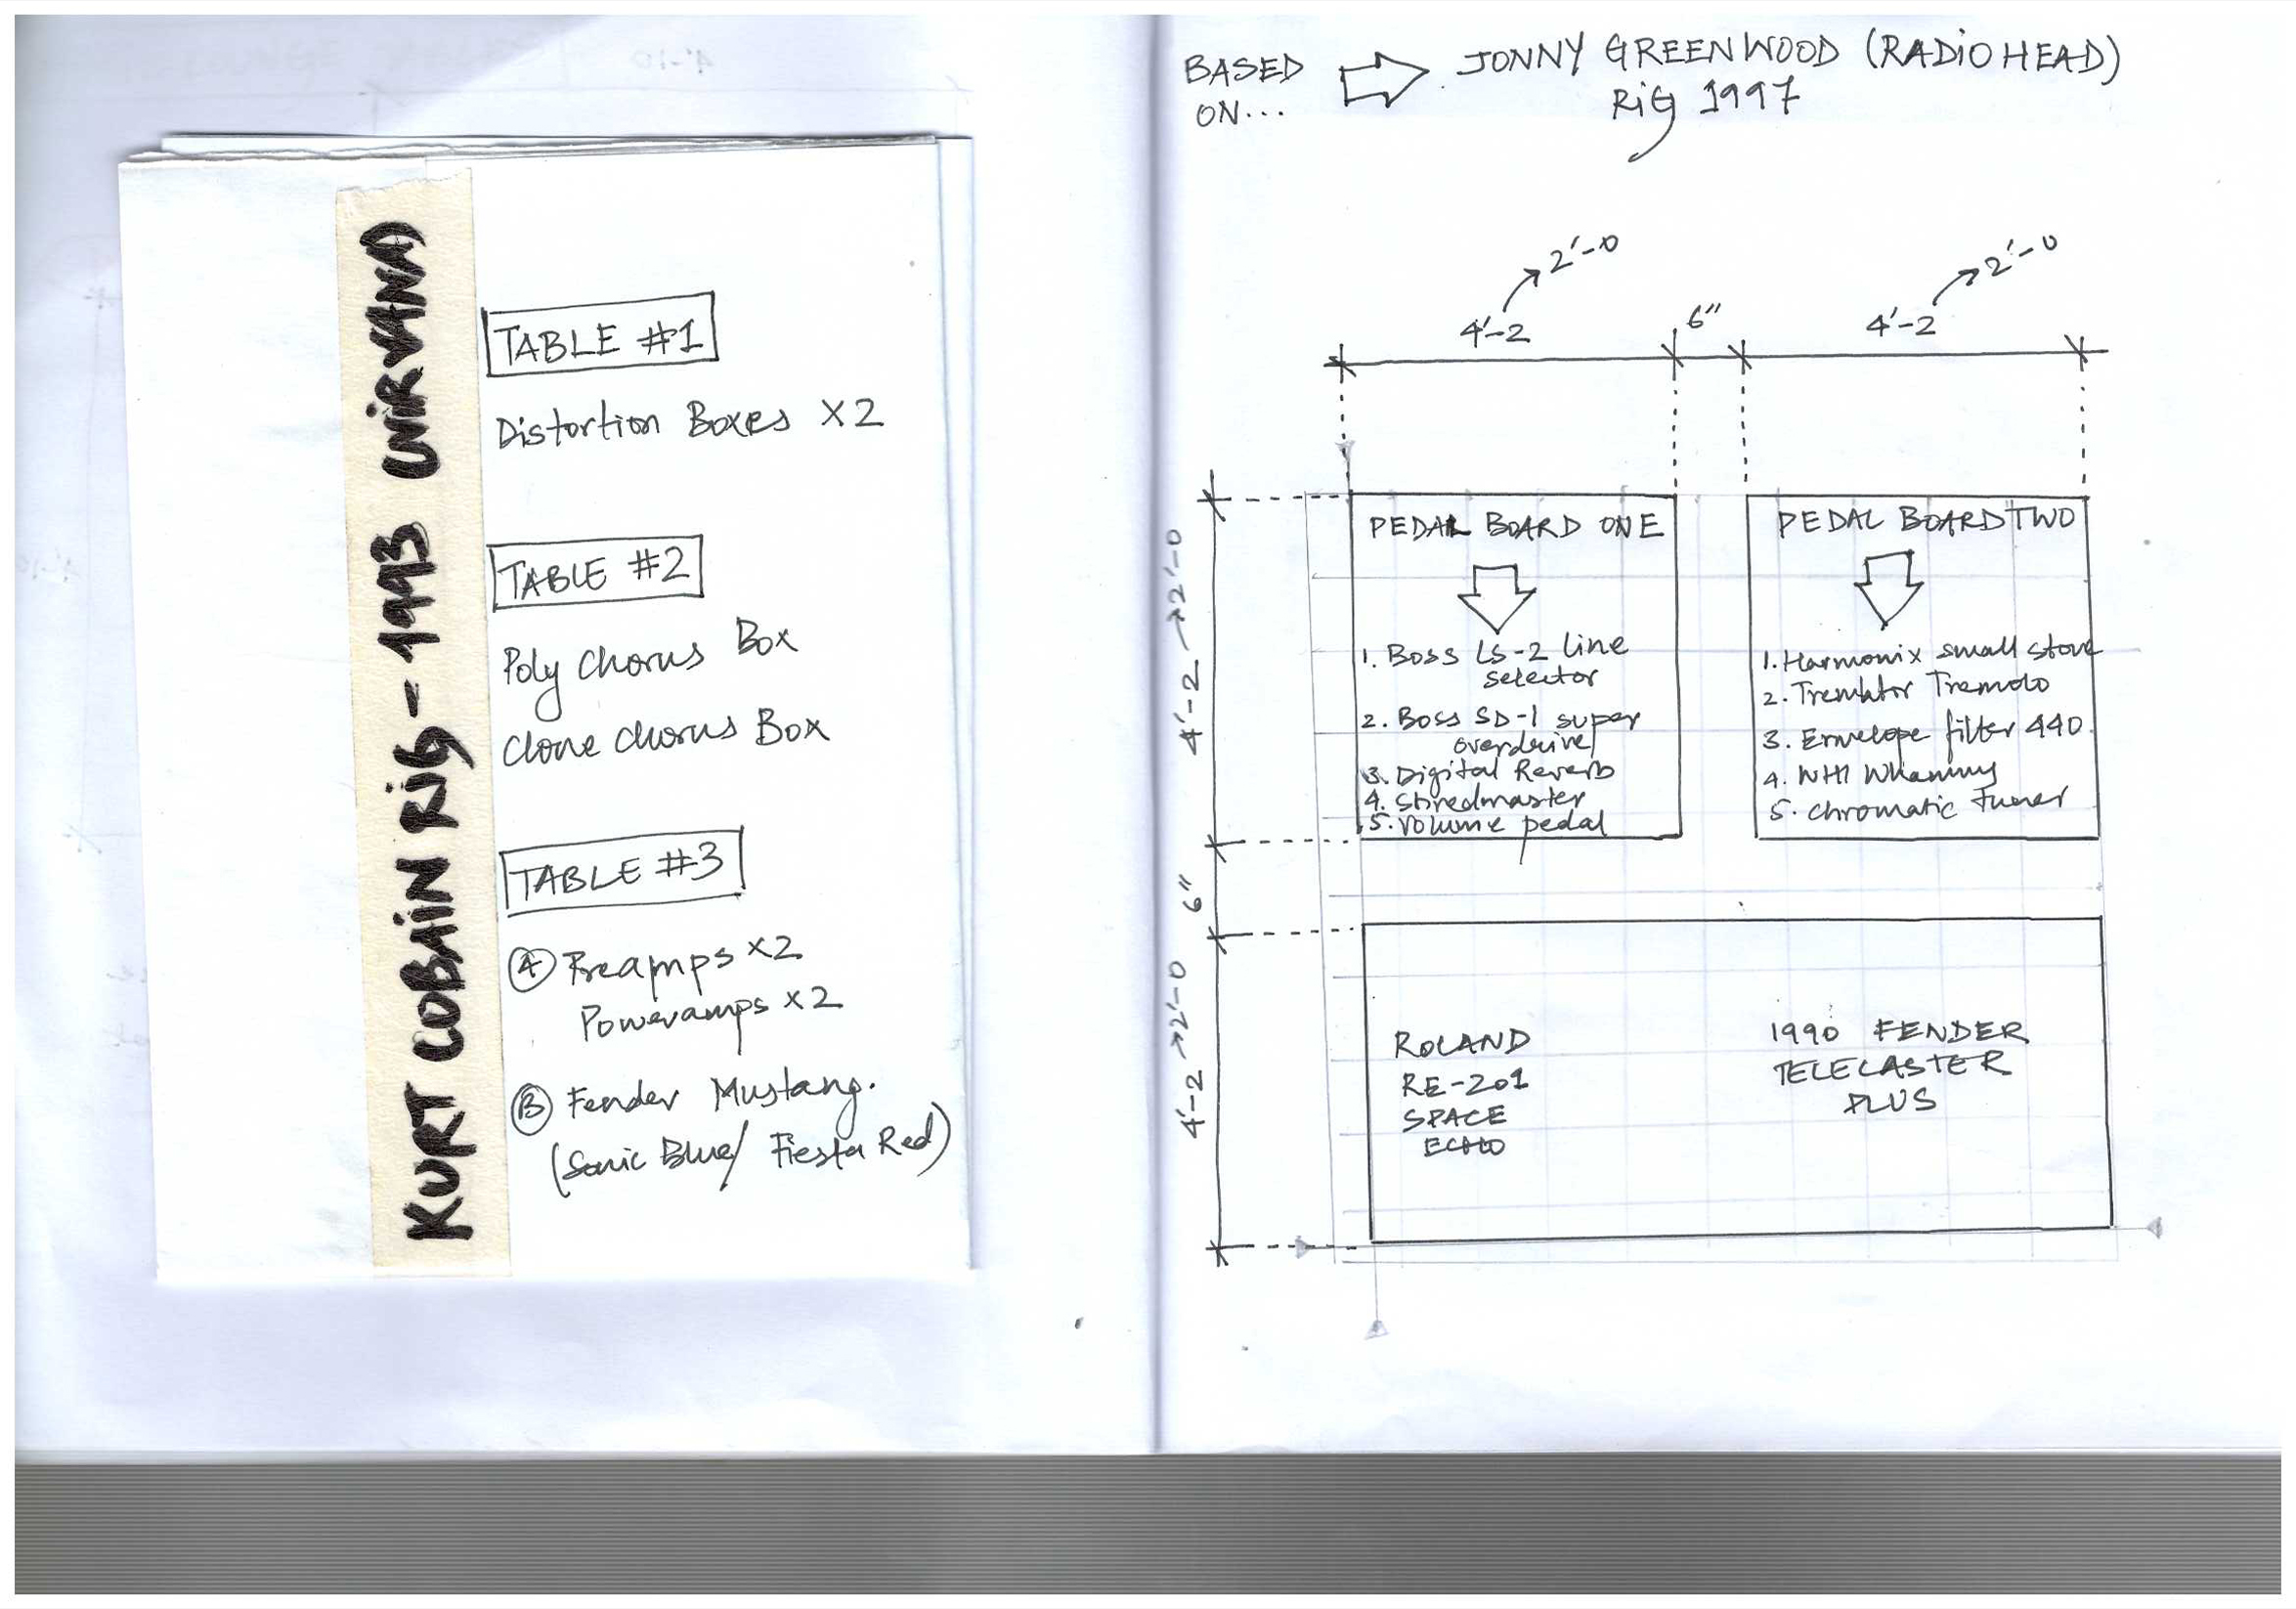 KURT COBAIN RIG - 1993 NIRVANA
TABLE #1
Distortion Boxes X2
TABLE #2
Poly Chorus Box
Clone Chorus Box
TABLE #3
A Preamps X2
Poweramps X2
B Fender Mustang.
(Sonic Blue/ Fiesta Red)
BASED
ON...
JONNY GREENWOOD (RADIOHEAD)
RIG 1997
2'-0
2'-0
4'-2
6"
4'-2
4'-2 → 2'-0
6"
4'-2 → 2'-0
PEDAL BOARD ONE
1. Boss LS-2 line
selector
2. Boss SD-1 super
overdrive
3. Digital Reverb
4. Shredmaster
5. Volume pedal
PEDAL BOARD TWO
1. Harmonix small stone
2. Tremolo
3. Envelope filter 440.
4. WH1 Whammy
5. Chromatic Tuner
ROLAND
RE-201
SPACE
ECHO
1990 FENDER
TELECASTER
PLUS